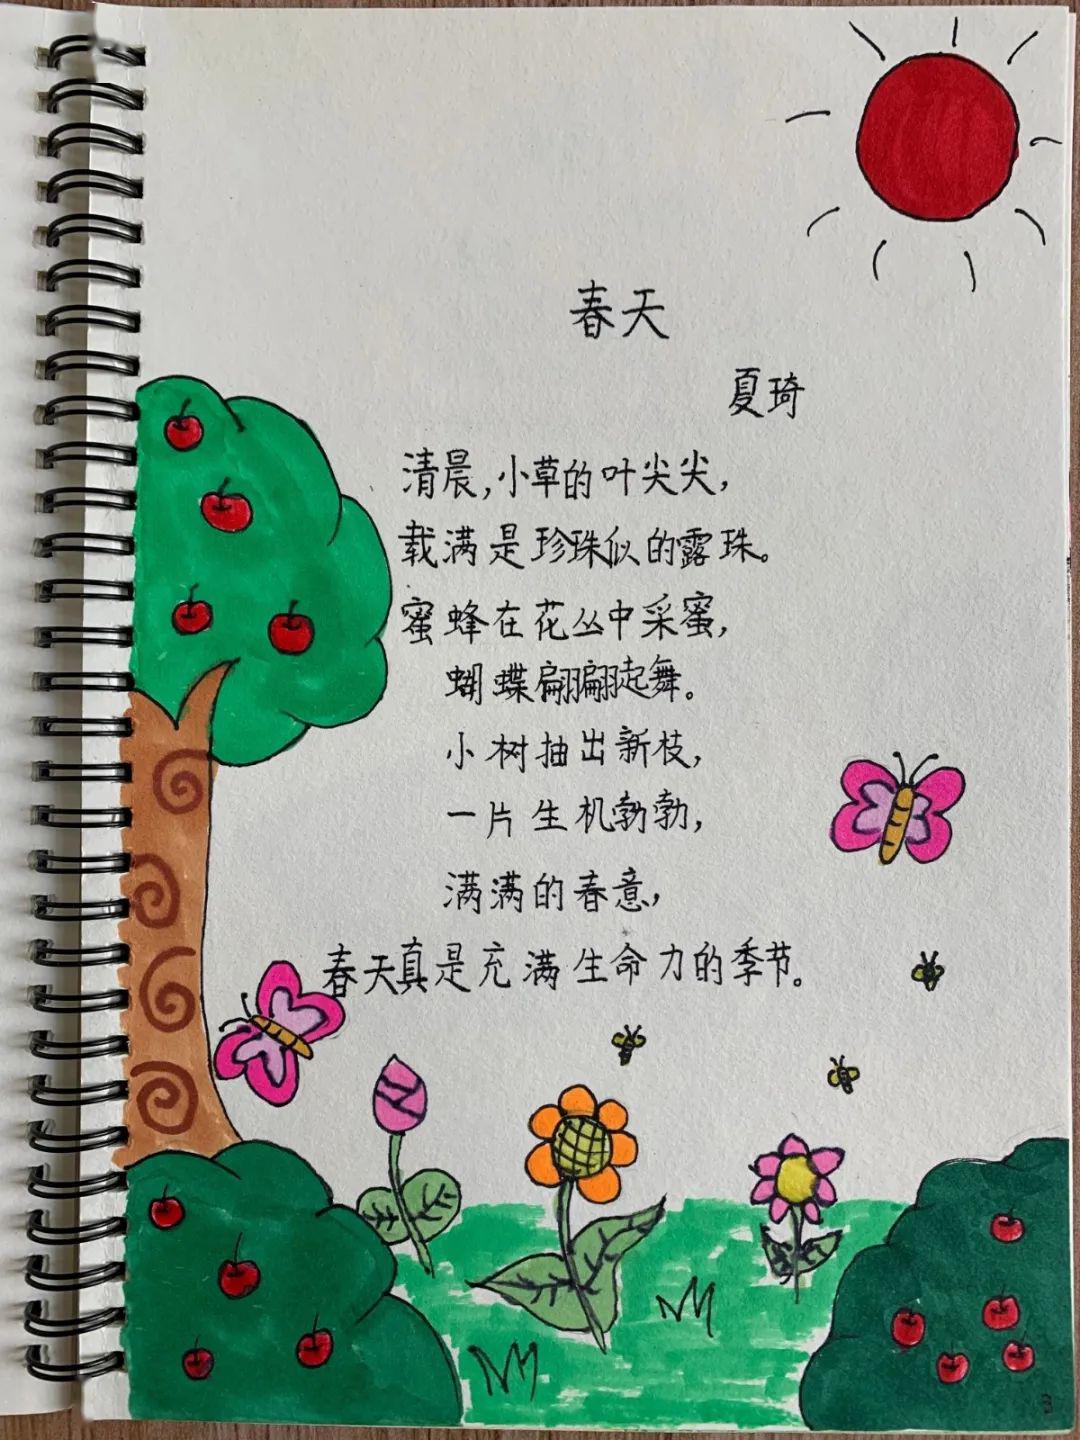 春天
夏琦
清晨,小草的叶尖尖,
载满是珍珠似的露珠。
蜜蜂在花丛中采蜜,
蝴蝶翩翩起舞。
小树抽出新枝,
一片生机勃勃,
满满的春意,
春天真是充满生命力的季节。
3